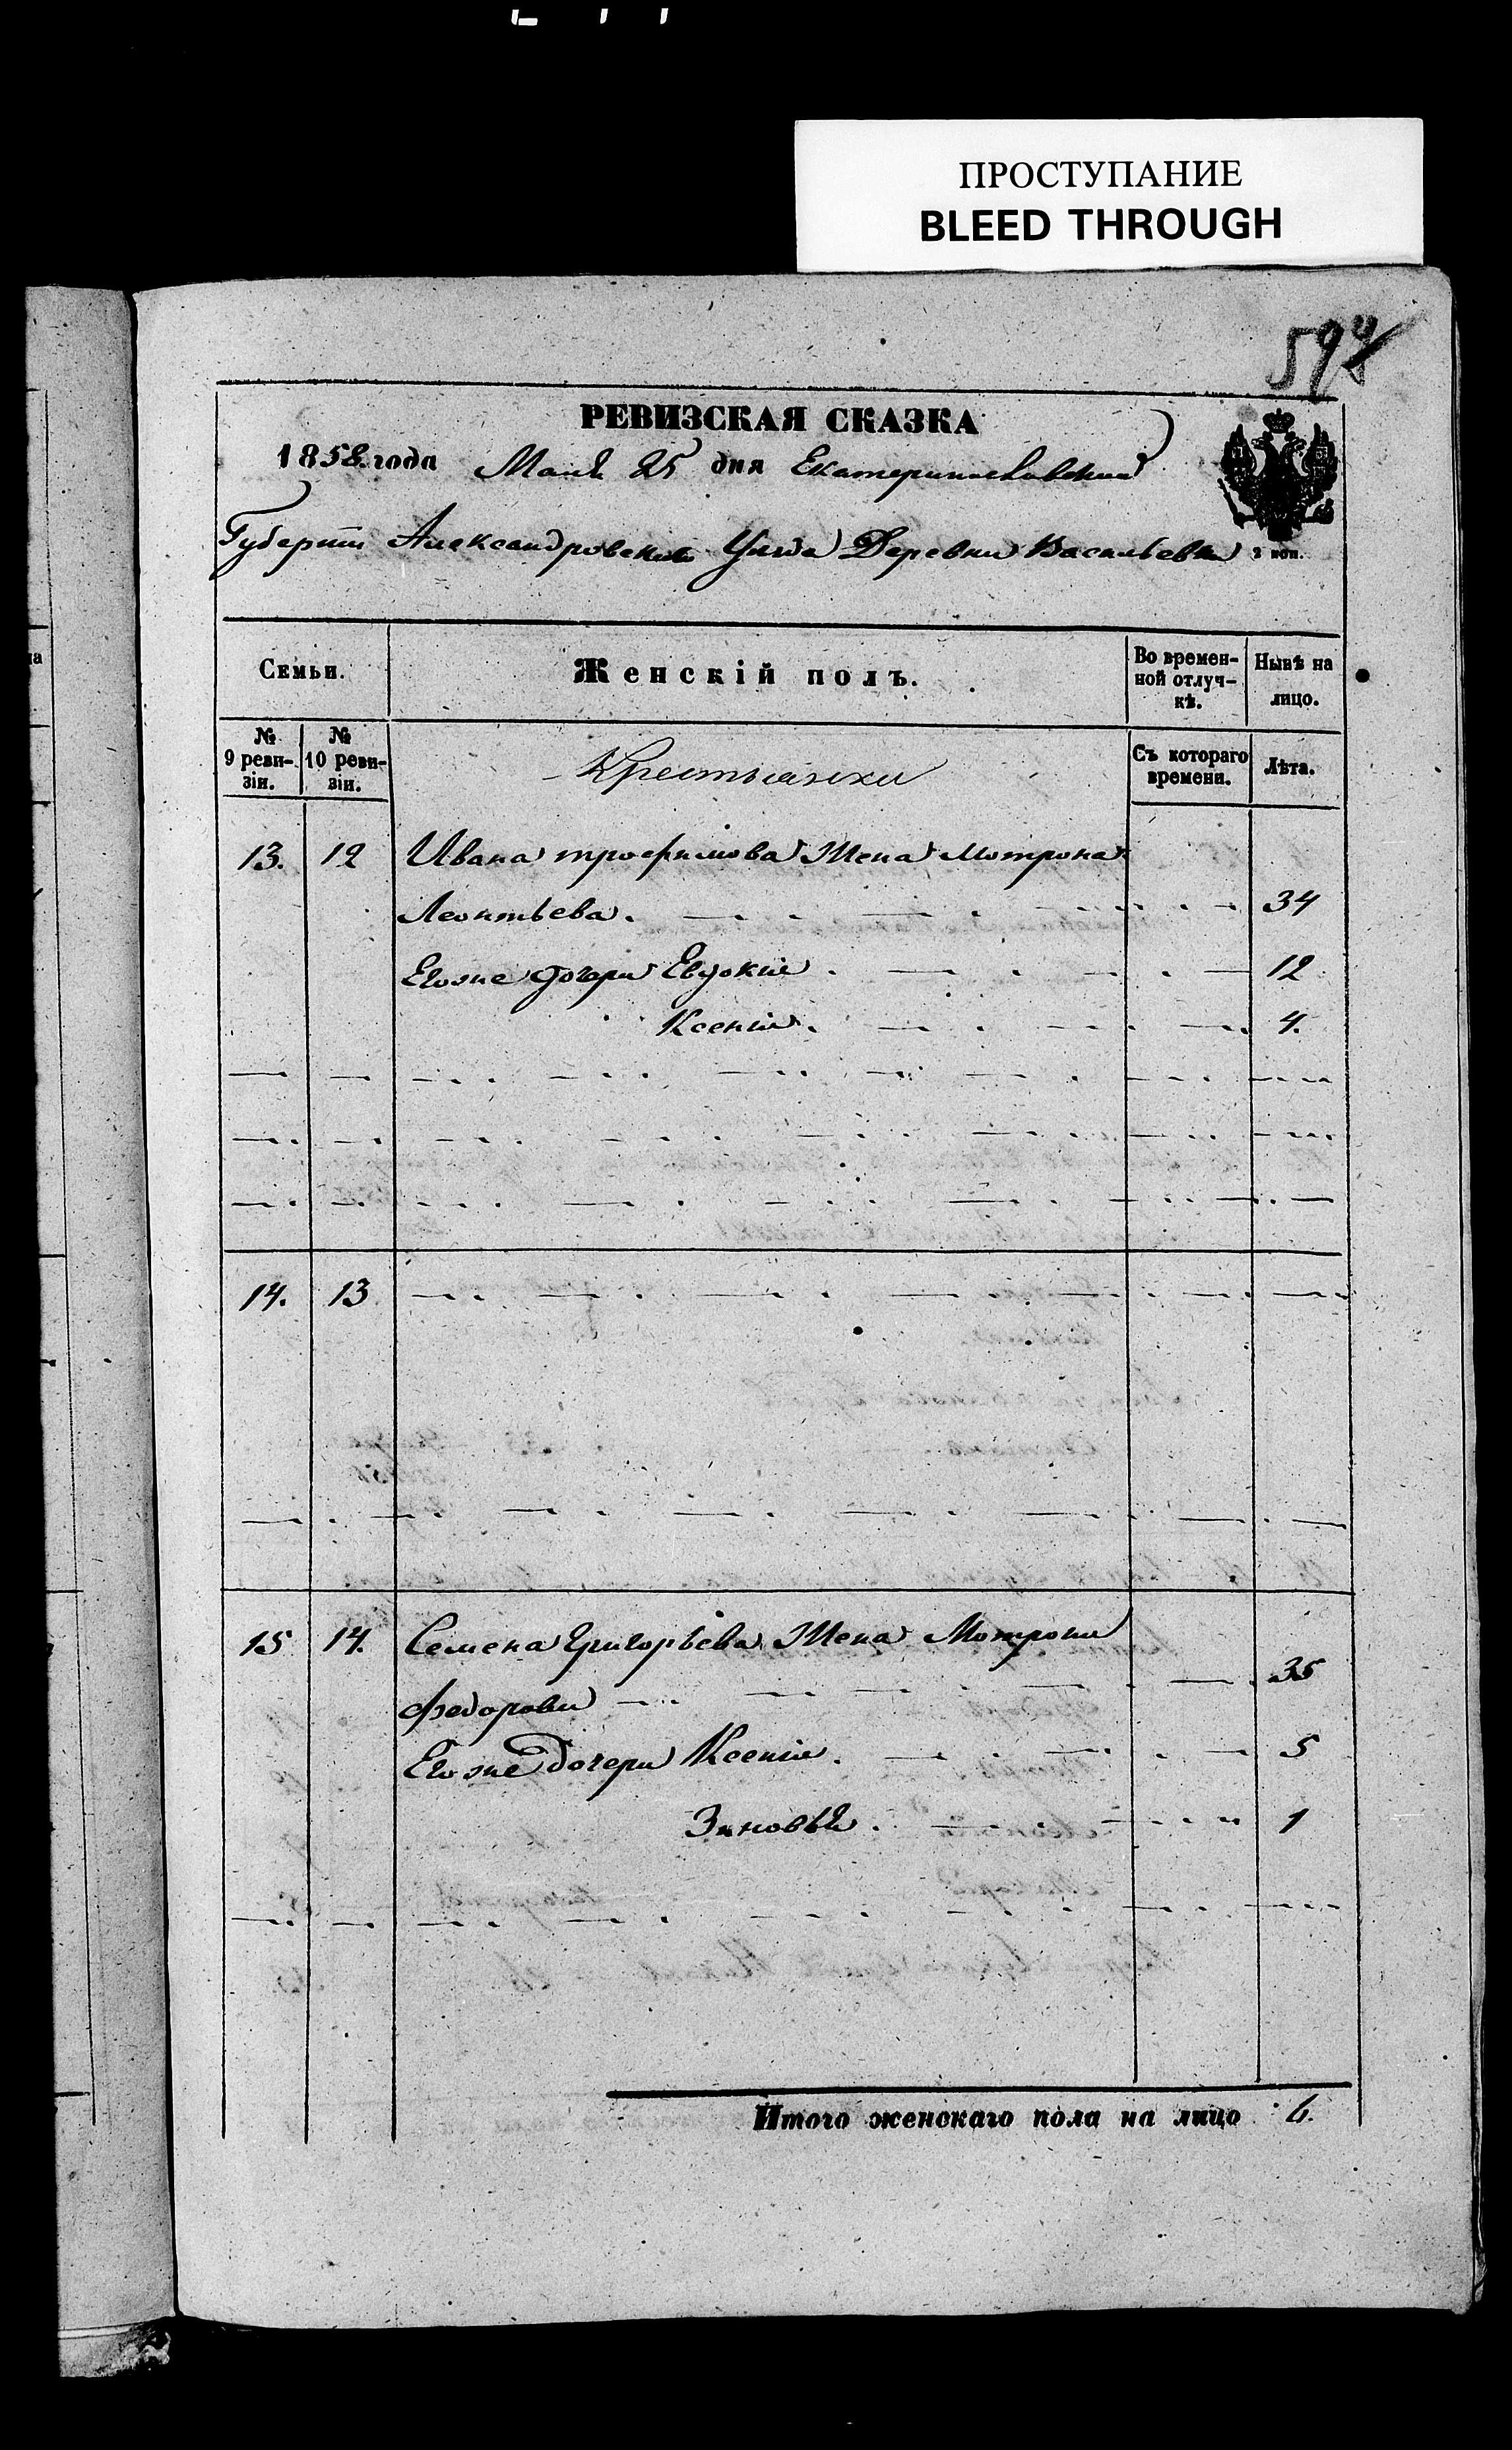 ПРОСТУПАНИЕ
BLEED THROUGH
РЕВИЗСКАЯ СКАЗКА
1858 года Маія 25 дня Екатеринославской
Губерніи Александровскаго Уѣзда Деревни Васильевки 3 коп.
Семьи. Женскій полъ. Во времен-ной отлуч-кѣ. Нынѣ на лицо.
№ 9 реви-зіи. № 10 реви-зіи. Крестьянки Съ котораго времени. Лѣта.
13. 12 Ивана трофимова Жена Мотрона
Леонтьева. 34
Его же дочери Евдокия. 12
Ксения. 4.
14. 13
15 14. Семена Григорьева Жена Мотрона
Федорова 35
Его же дочери Ксения. 5
Зиновья. 1
Итого женскаго пола на лицо 6.